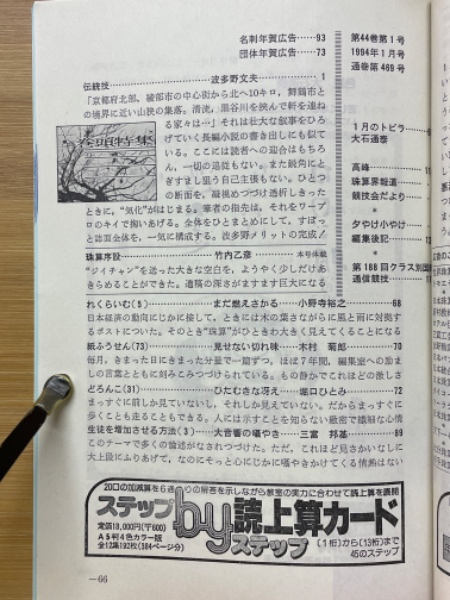 名刺年賀広告……93
団体年賀広告……73
伝統技 波多野文夫 1
「京都府北部、綾部市の中心街から北へ10キロ，舞鶴市と
の境界に近い山峡の集落。清流，黒谷川を挾んで軒を連ね
る家々は…」それは壮大な叙事をひろ
げていく長編小説の書き出しにも似て
いる。ここには読者への迎合はもちろ
ん，一切の追従もない。また鋭角にと
ぎすまし狙う自己主張もない。ひとつ
の断面を，凝視めつづけ透析しきった
巻頭特集
ときに，“気化”がはじまる。筆者の指先は，それをワープ
ロのキイで掬いあげる。全体をひとまとめにして，すぽっ
と誌面全体を，一気に構成する。波多野メリットの完成！
珠算序説 竹内乙彦 本号休載
“ジイチャン”を送った大きな空白を，ようやく少しだけあ
きらめることができた。遺稿の深さがますます巨大になる
れくらいむ(5) まだ燃えさかる 小野寺裕之 68
日本経済の動向にじかに接して，ときには木の葉さながらに風と雨に対換す
るポストについた。そのとき“珠算”がひときわ大きく見えてくることになる
紙ふうせん(73) 見せない切れ味 木村菊郎 70
毎月，きまった日にきまった分量で一篇ずつ。ほぼ7年間，編集室への励ま
しの言葉とともに刻みこみつづけられている。もの静かでこれほどの激しさ
どろんこ(31) ひたむきな冴え 堀口ひとみ 72
まっすぐに前しか見ていないし，それしか見えていない。だからまっすぐに
歩くことも走ることもできる。人には示すことを知らない緻密で繊細な心情
生徒を増加させる方法(3) 大音響の囁やき 三富邦基 89
このテーマで多くの論述がなされつづけた。ただ，これほど見さかいなしに
大上段にふりあげて，なのにそっと心にじかに囁やきかけてくる情熱はない
20口の加減算を6通りの解答を示しながら教室の実力に合わせて読上算を展開
ステップbyステップ読上算カード
定価18,000円(〒600)
A5判4色カラー版
全12集192枚(384ページ分)
(1桁)から(13桁)まで
45のステップ
—66
第44巻第1号
1994年1月号
通巻第469号
1月のトビラ
大石通泰
高峰
珠算界報道
競技会だより
夕やけ小やけ
編集後記
第188回クラス別国
通信競技